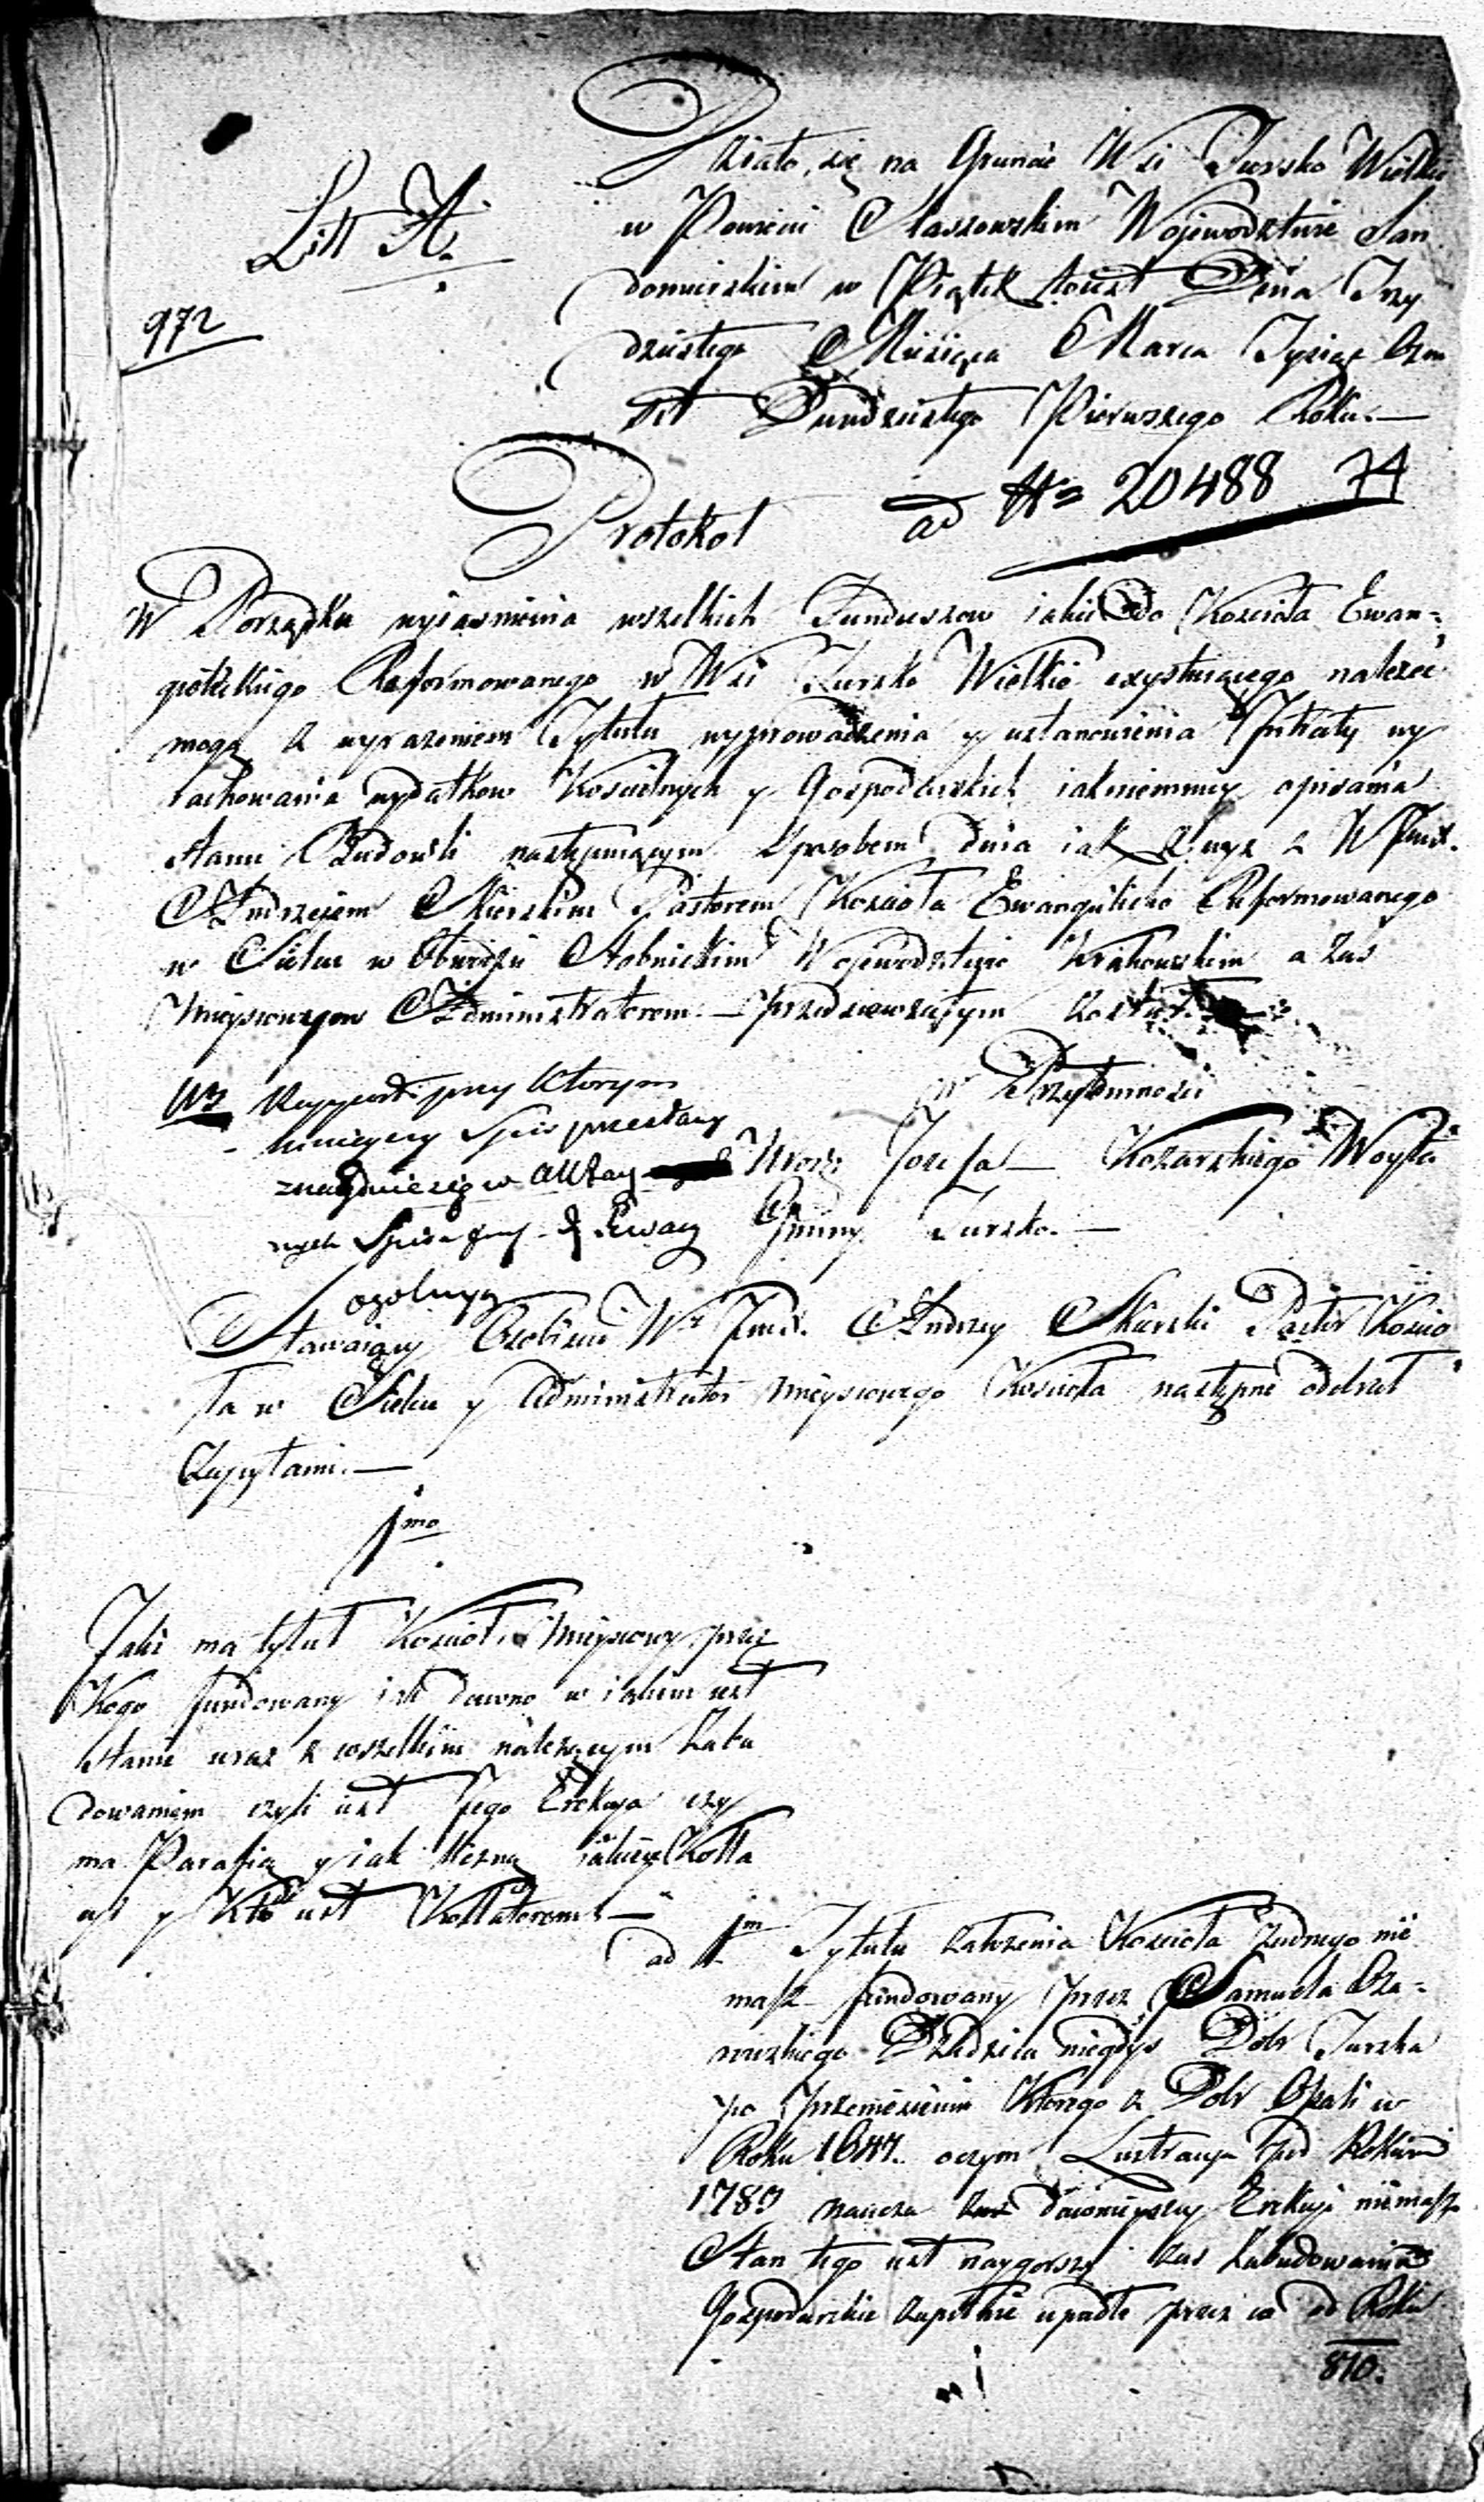 Litt A.
972
Działo się na Gruncie Wsi Tursko Wielkie
w Powiecie Staszowskim Wojewodztwie San
domierskim w Piątek to iest Dnia Trzy
dziestego Miesiąca Marca Tysiąc Osm
set Dwudziestego Pierwszego Roku. —
Protokoł
ad No 20488 74
W Porządku wyiasnienia wszelkich Funduszow iakie do Koscioła Ewan-
gielickiego Reformowanego w Wsi Tursko Wielkie exystuiącego należeć
mogą z wyrażeniem Tytułu wyprowadzenia y ustanowienia Intraty wy
rachowania wydatkow Koscielnych y Gospodarskich iakniemniey opisania
stanu Budowli następuiącym sposobem dnia iak wyż z W Jmć.
Andrzejem Skierskim Pastorem Koscioła Ewangelicko Reformowanego
w Sielcu w Obwodzie Stobnickim Wojewodztwie Krakowskim a zas
Mieyscowym Administratorem — przedsiewziętym został.
w Przytomnosci
NB Rapport przy ktorym
ninieyszy Spis przesłany
znayduie się w Aktach
nych Spisu
ogolnych
Jozefa Kozarskiego Woyta
Gminy Tursko. —
Stawaiący Osobiscie W. Jmć. Andrzey Skierski Pastor Koscio
ła w Sielcu y Administrator mieyscowego Koscioła następne odebrał
Zapytania. —
1mo
Jaki ma tytuł Kosciół mieyscowy przez
Kogo fundowany iak dawno w iakim iest
stanie wraz z wszelkim należącym Zabu
dowaniem czyli iest Jego Erekcya czy
ma Parafią y iak liczną iakiey Kolla
cyi y Kto iest Kollatorem —
ad 1m Tytułu założenia Koscioła żadnego nie
masz fundowany przez Samuela
Dziedzica niegdys Dobr Turska
po przeniesieniu Ktorego z Dobr w
Roku oczym Lustracya pod Rokiem
1789 naucza dawnieyszey Erekcyi niemasz
Stan tego iest naygorszy zas Zabudowania
Gospodarskie zupełnie upadłe przez co od Roku
810.